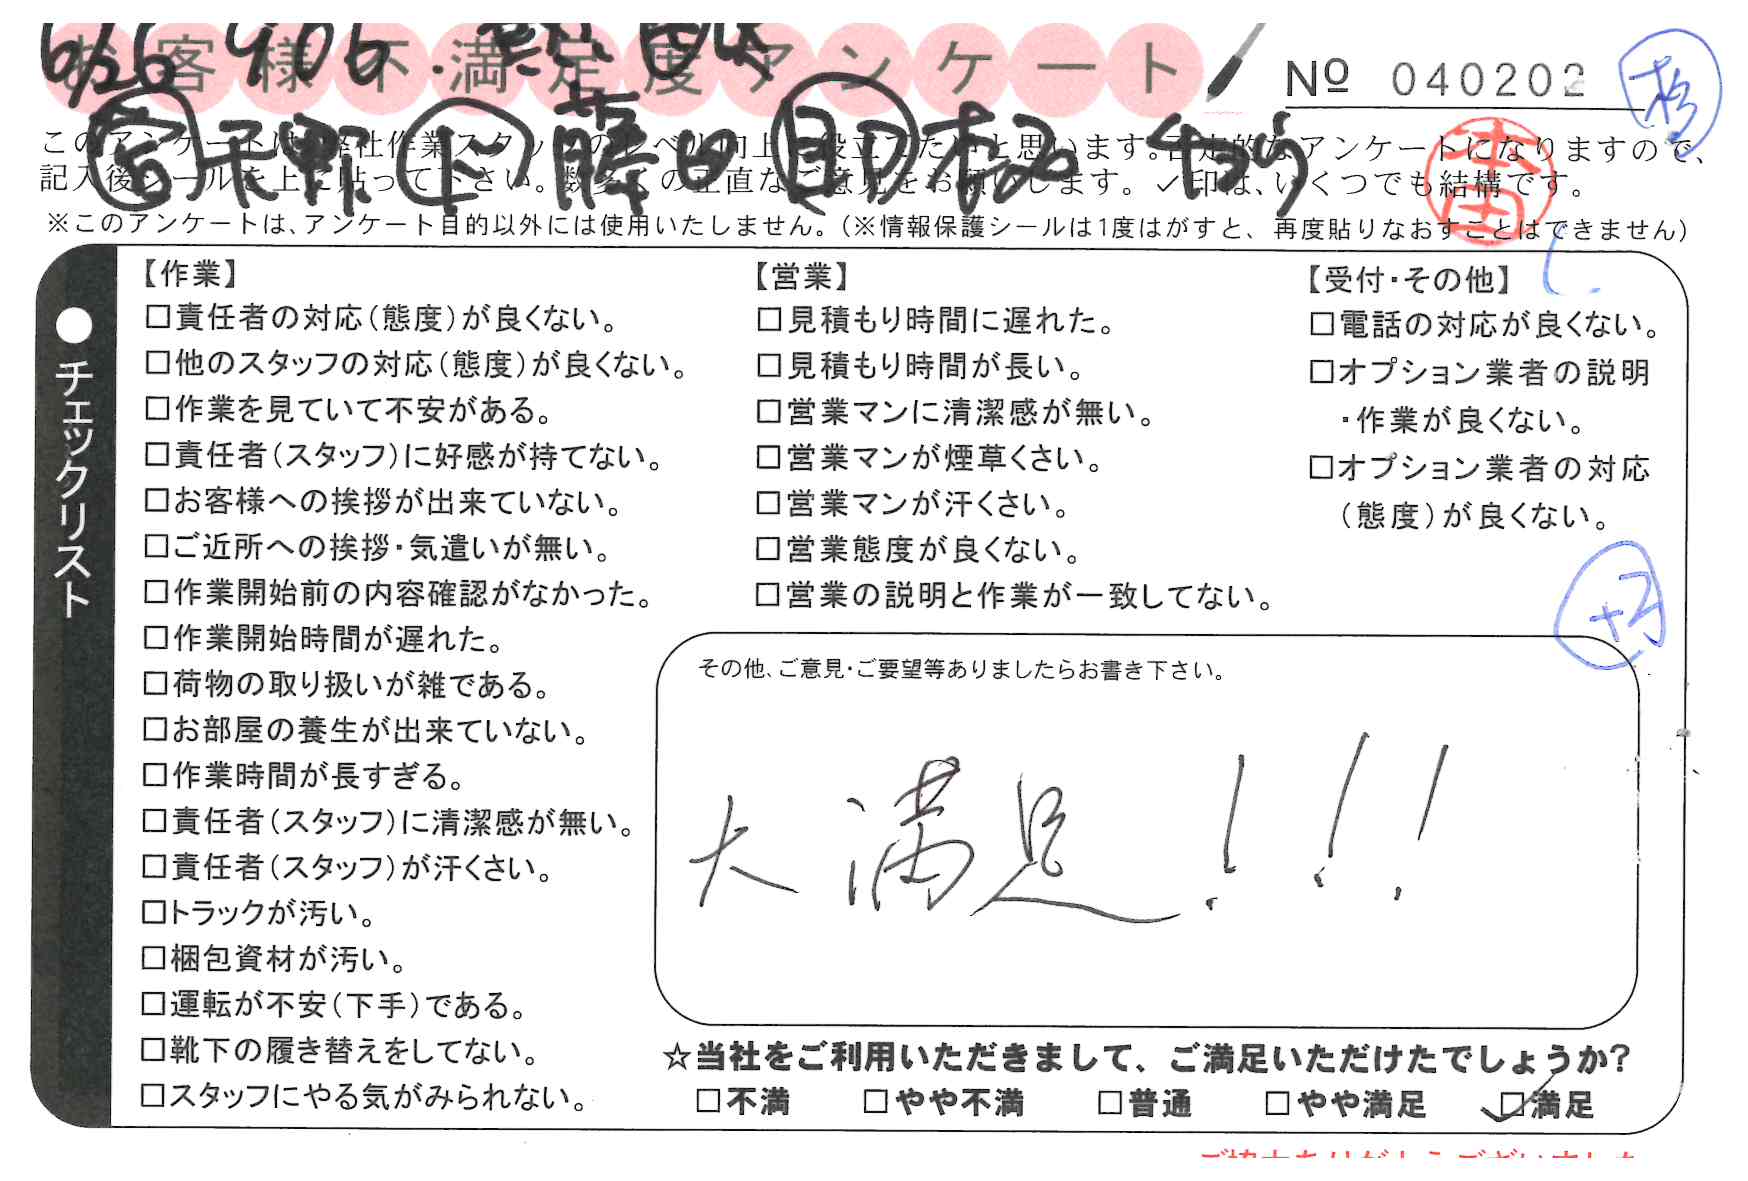 お客様不満足度アンケート
6/26 406.
№ 040202
このアンケートは、弊社作業スタッフのレベル向上に役立てたいと思います。否定的なアンケートになりますので、
記入後シールを上に貼って下さい。数多くの正直なご意見をお願いします。✓印は、いくつでも結構です。
※このアンケートは、アンケート目的以外には使用いたしません。(※情報保護シールは1度はがすと、再度貼りなおすことはできません)
●チェックリスト
【作業】
□責任者の対応(態度)が良くない。
□他のスタッフの対応(態度)が良くない。
□作業を見ていて不安がある。
□責任者(スタッフ)に好感が持てない。
□お客様への挨拶が出来ていない。
□ご近所への挨拶・気遣いが無い。
□作業開始前の内容確認がなかった。
□作業開始時間が遅れた。
□荷物の取り扱いが雑である。
□お部屋の養生が出来ていない。
□作業時間が長すぎる。
□責任者(スタッフ)に清潔感が無い。
□責任者(スタッフ)が汗くさい。
□トラックが汚い。
□梱包資材が汚い。
□運転が不安(下手)である。
□靴下の履き替えをしてない。
□スタッフにやる気がみられない。
【営業】
□見積もり時間に遅れた。
□見積もり時間が長い。
□営業マンに清潔感が無い。
□営業マンが煙草くさい。
□営業マンが汗くさい。
□営業態度が良くない。
□営業の説明と作業が一致してない。
【受付・その他】
□電話の対応が良くない。
□オプション業者の説明
・作業が良くない。
□オプション業者の対応
(態度)が良くない。
その他、ご意見・ご要望等ありましたらお書き下さい。
大満足!!!
☆当社をご利用いただきまして、ご満足いただけたでしょうか?
□不満 □やや不満 □普通 □やや満足 ☑満足
ご協力ありがとうございました